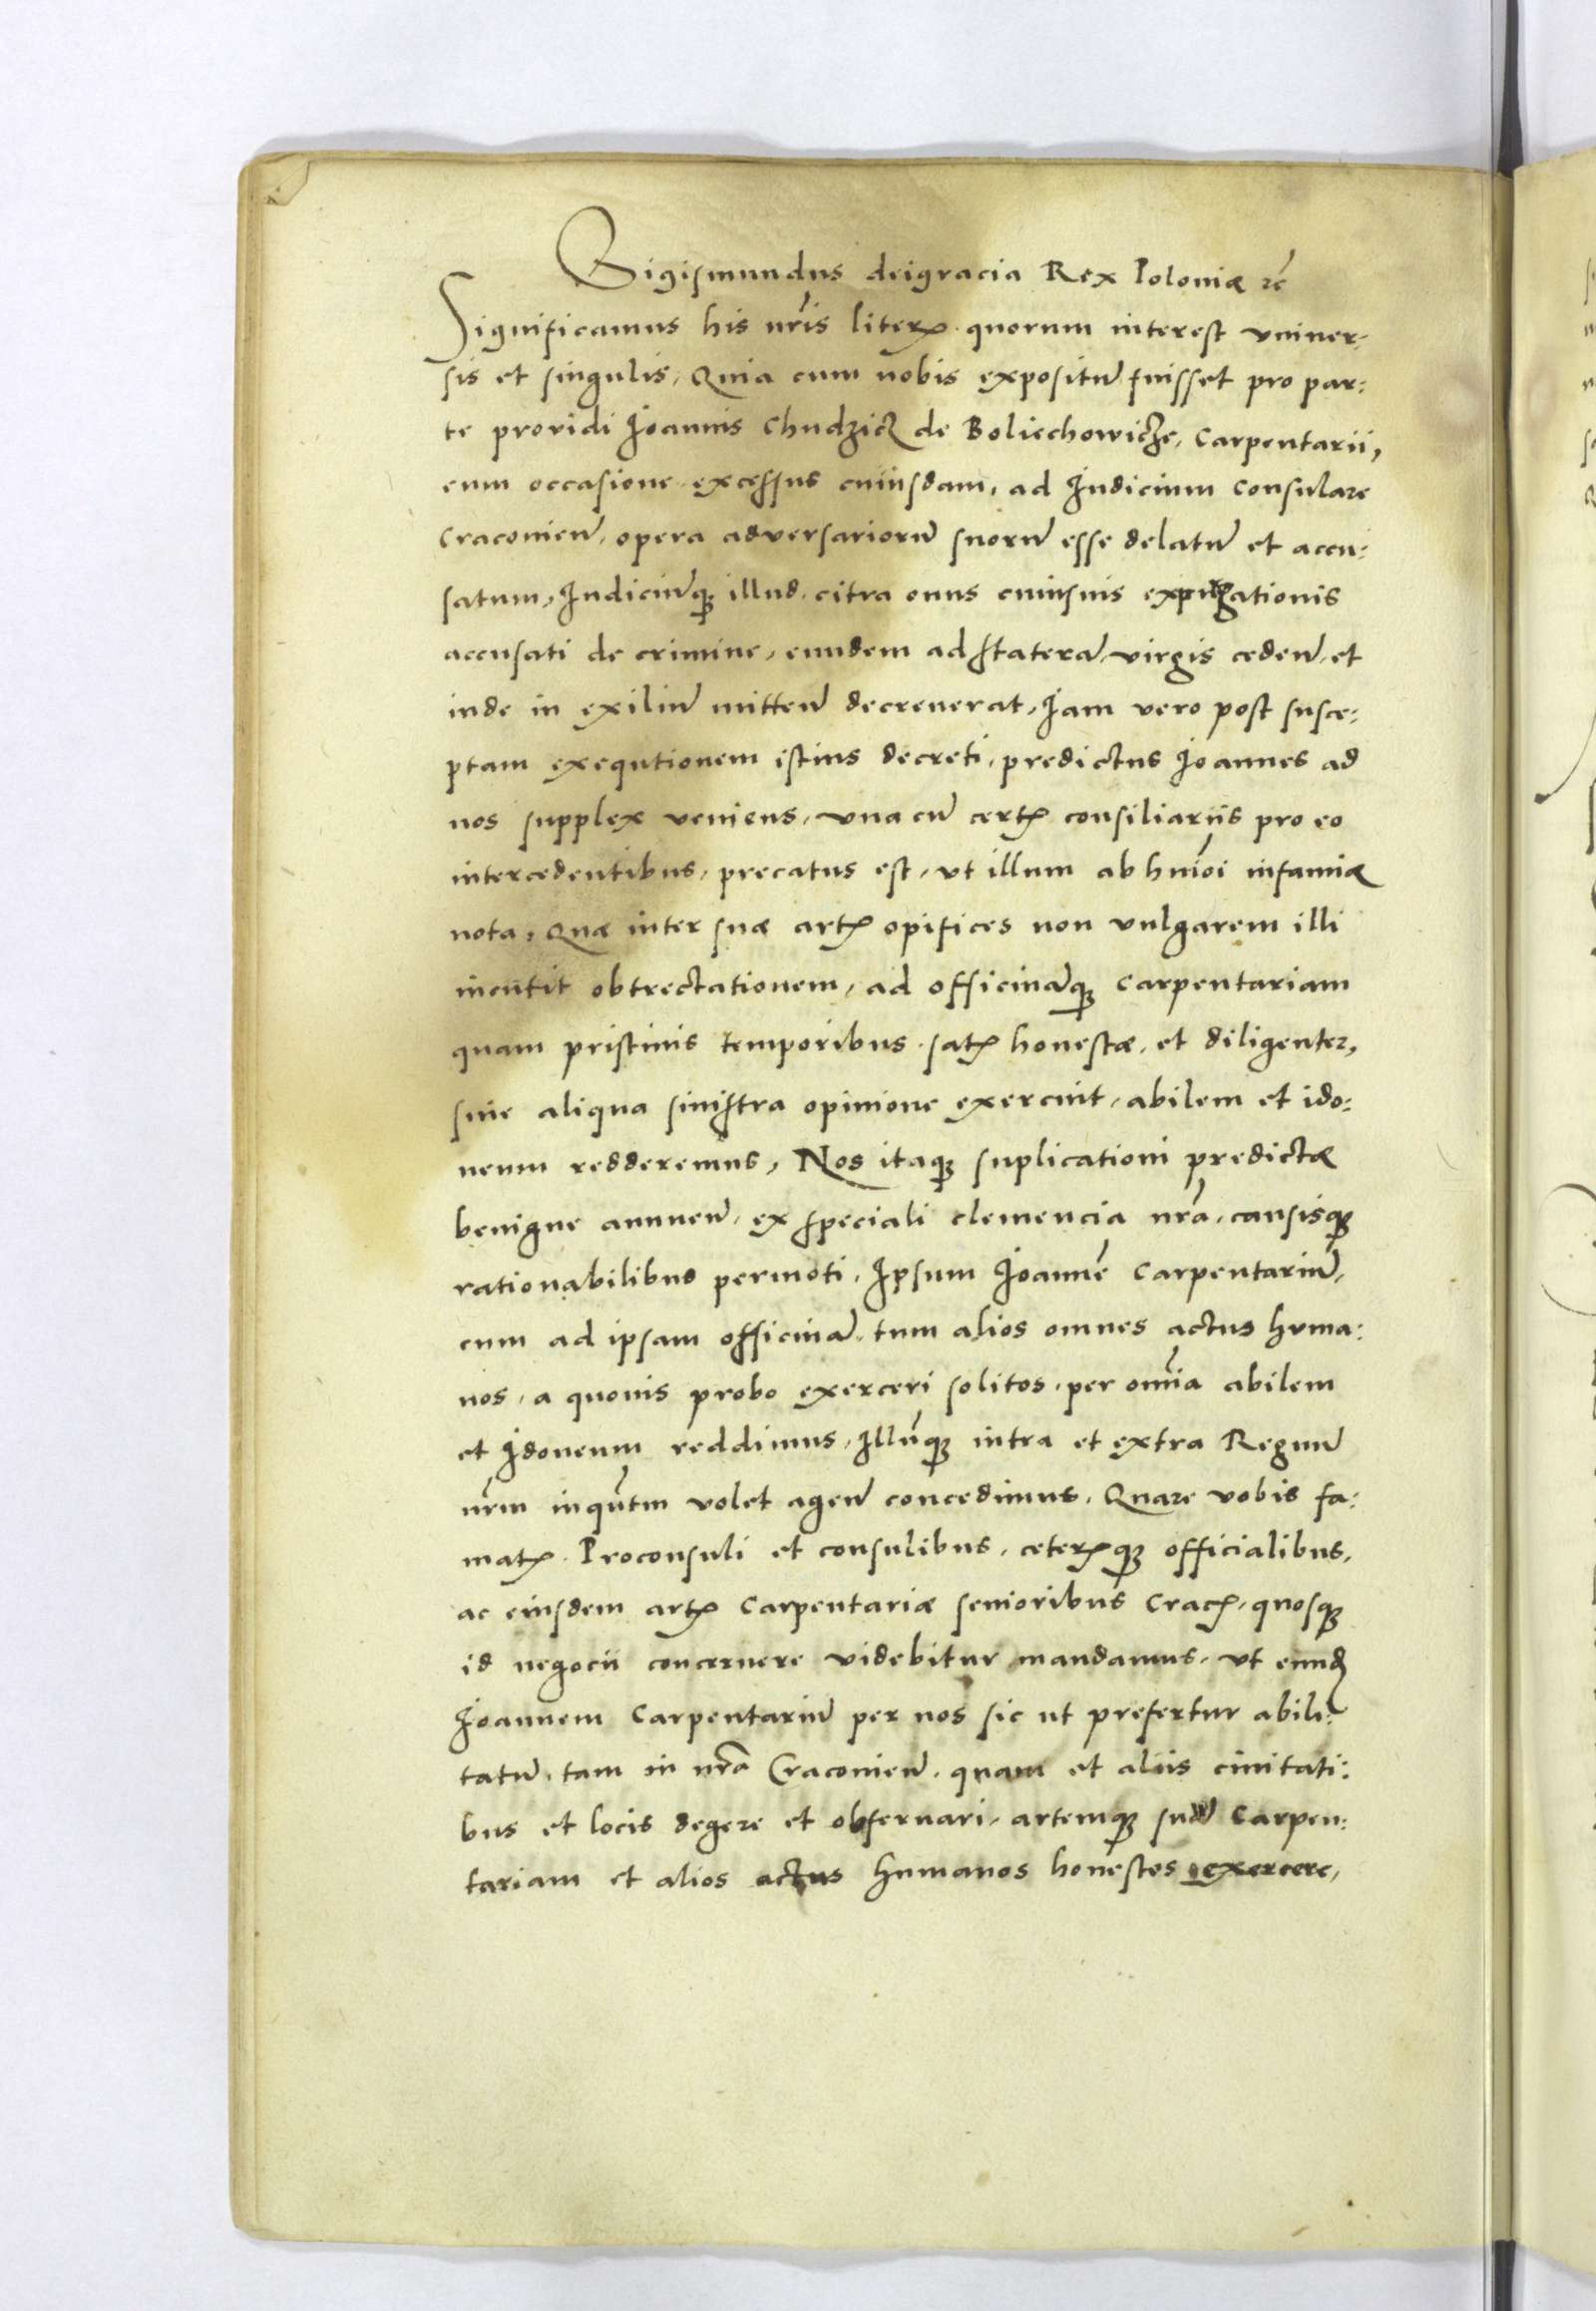 Sigismundus deigracia Rex Poloniæ ꝛc̃
Significamus his nr̃is literꝭ quorum interest vniuer⸗
sis et singulis, Quia cum nobis expositũ fuisset pro par⸗
te prouidi Joannis Chudzicz de Boliechowicze, Carpentarii,
eum occasione excessus cuiusdam, ad Judicium Consulare
Cracouieñ, opera aduersariorũ suorũ esse delatũ et accu⸗
satum, Judiciũqꝫ illud citra onus cuiusuis expurgationis
accusati de crimine, eundem ad staterã virgis cedeñ et
inde in exiliũ mitteñ decreuerat, Jam vero post susce⸗
ptam exequtionem istius decreti, predictus Joannes ad
nos supplex veniens, vna cũ certꝭ consiliariis pro eo
intercedentibus, precatus est, vt illum ab huiõi infamiæ
nota, Quæ inter suæ artꝭ opifices non vulgarem illi
incutit obtrectationem, ad officinãqꝫ Carpentariam
quam pristinis temporibus satꝭ honestæ, et diligenter,
sine aliqua sinistra opinione exercuit, abilem et ido⸗
neum redderemus, Nos itaqꝫ suplicationi predictæ
benigne annueñ, ex speciali clemencia nr̃a, causisqꝫ
rationabilibus permoti, Ipsum Joannẽ Carpentariũ,
cum ad ipsam officinã, tum alios omnes actus huma⸗
nos, a quouis probo exerceri solitos, per om̃ia abilem
et Idoneum reddimus, Illũqꝫ intra et extra Regnũ
nr̃m inqũtm volet ageñ concedimus, Quare vobis fa⸗
matꝭ Proconsuli et consulibus, ceterꝭqꝫ officialibus,
ac eiusdem artꝭ Carpentariæ senioribus Cracꝭ, quosqꝫ
id negocii concernere videbitur mandamus, vt eundẽ
Joannem Carpentariũ per nos sic ut prefertur abili⸗
tatũ, tam in nr̃a Cracouieñ, quam et aliis ciuitati⸗
bus et locis degere et obseruari, artemqꝫ suã Carpen⸗
tariam et alios actus humanos honestos exercere,